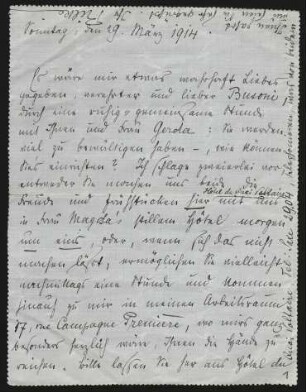 Sonntag, den 29. März 1914.
Es wäre mir etwas wahrhaft Liebes
gegeben, verehrter und lieber Busoni,
durch eine ruhig gemeinsame Stunde
mit Ihnen und Frau Gerda: Sie werden
viel zu bewältigen haben –, wie können
Sie's einrichten? Ich schlage zweierlei vor:
entweder Sie machen uns beide die
Freude und frühstücken hier mit uns
Hôtel du Quai Voltaire
in Frau Magda's stillem Hôtel morgen
um eins, oder, wenn sich das nicht
machen lässt, ermöglichen Sie vielleicht
nachmittags eine Stunde und kommen
hinaus zu mir in meinen Arbeitsraum
17, rue Campagne Première, wo mir's ganz
besonders herzlich wäre, Ihnen die Hände zu
reichen. Bitte lassen Sie hier ins Hôtel du
Quai Voltaire